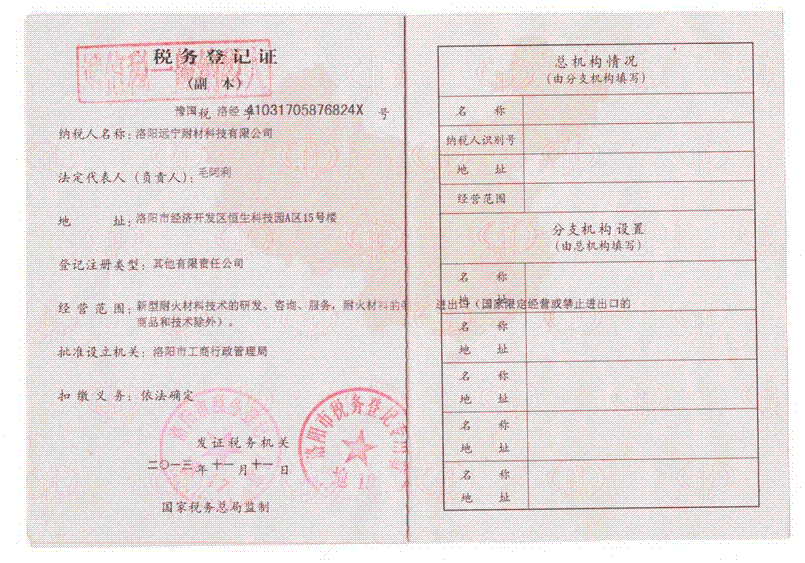 税务登记证
(副 本)
豫国税 洛经字 41031705876824X 号
纳税人名称：洛阳远宁耐材科技有限公司
法定代表人（负责人）：毛阿利
地 址：洛阳市经济开发区恒生科技园A区15号楼
登记注册类型：其他有限责任公司
经营范围：新型耐火材料技术的研发、咨询、服务，耐火材料的 进出口（国家限定经营或禁止进出口的
商品和技术除外）。
批准设立机关：洛阳市工商行政管理局
扣缴义务：依法确定
发证税务机关
二〇一三年十一月十一日
国家税务总局监制
洛阳市税务登记
洛阳市税务登记专
总机构情况
(由分支机构填写)
名 称
纳税人识别号
地 址
经营范围
分支机构设置
(由总机构填写)
名 称
地 址
名 称
地 址
名 称
地 址
名 称
地 址
名 称
地 址